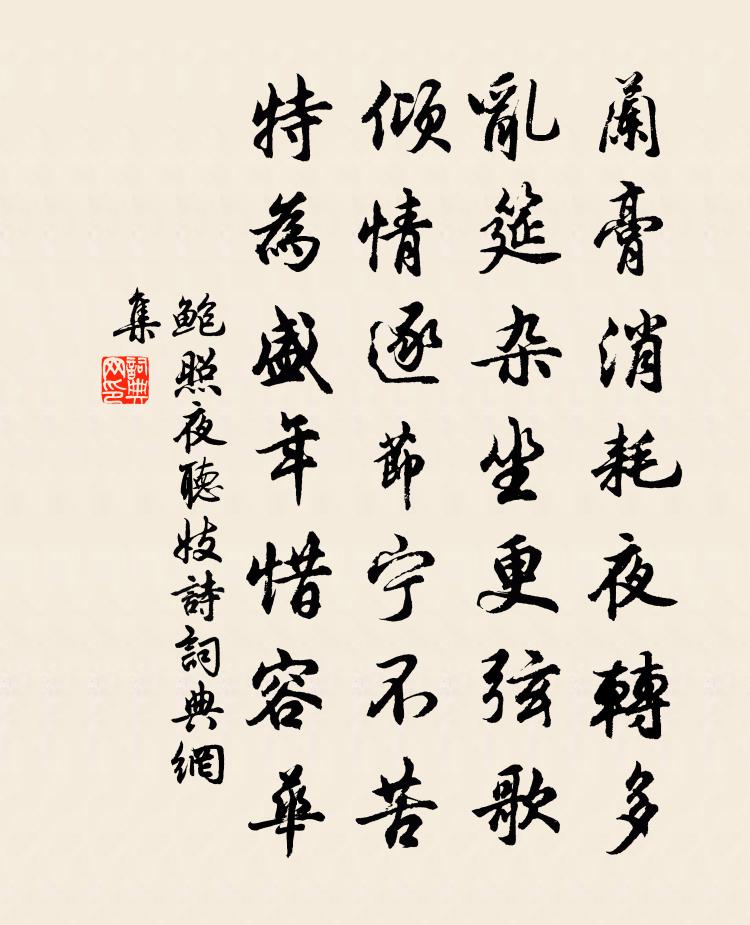 蘭膏消耗夜轉多
亂筵杂坐更弦歌
傾情逐節宁不苦
特為盛年惜容華
鲍照夜聽妓詩詞典網
集
詞典
网印